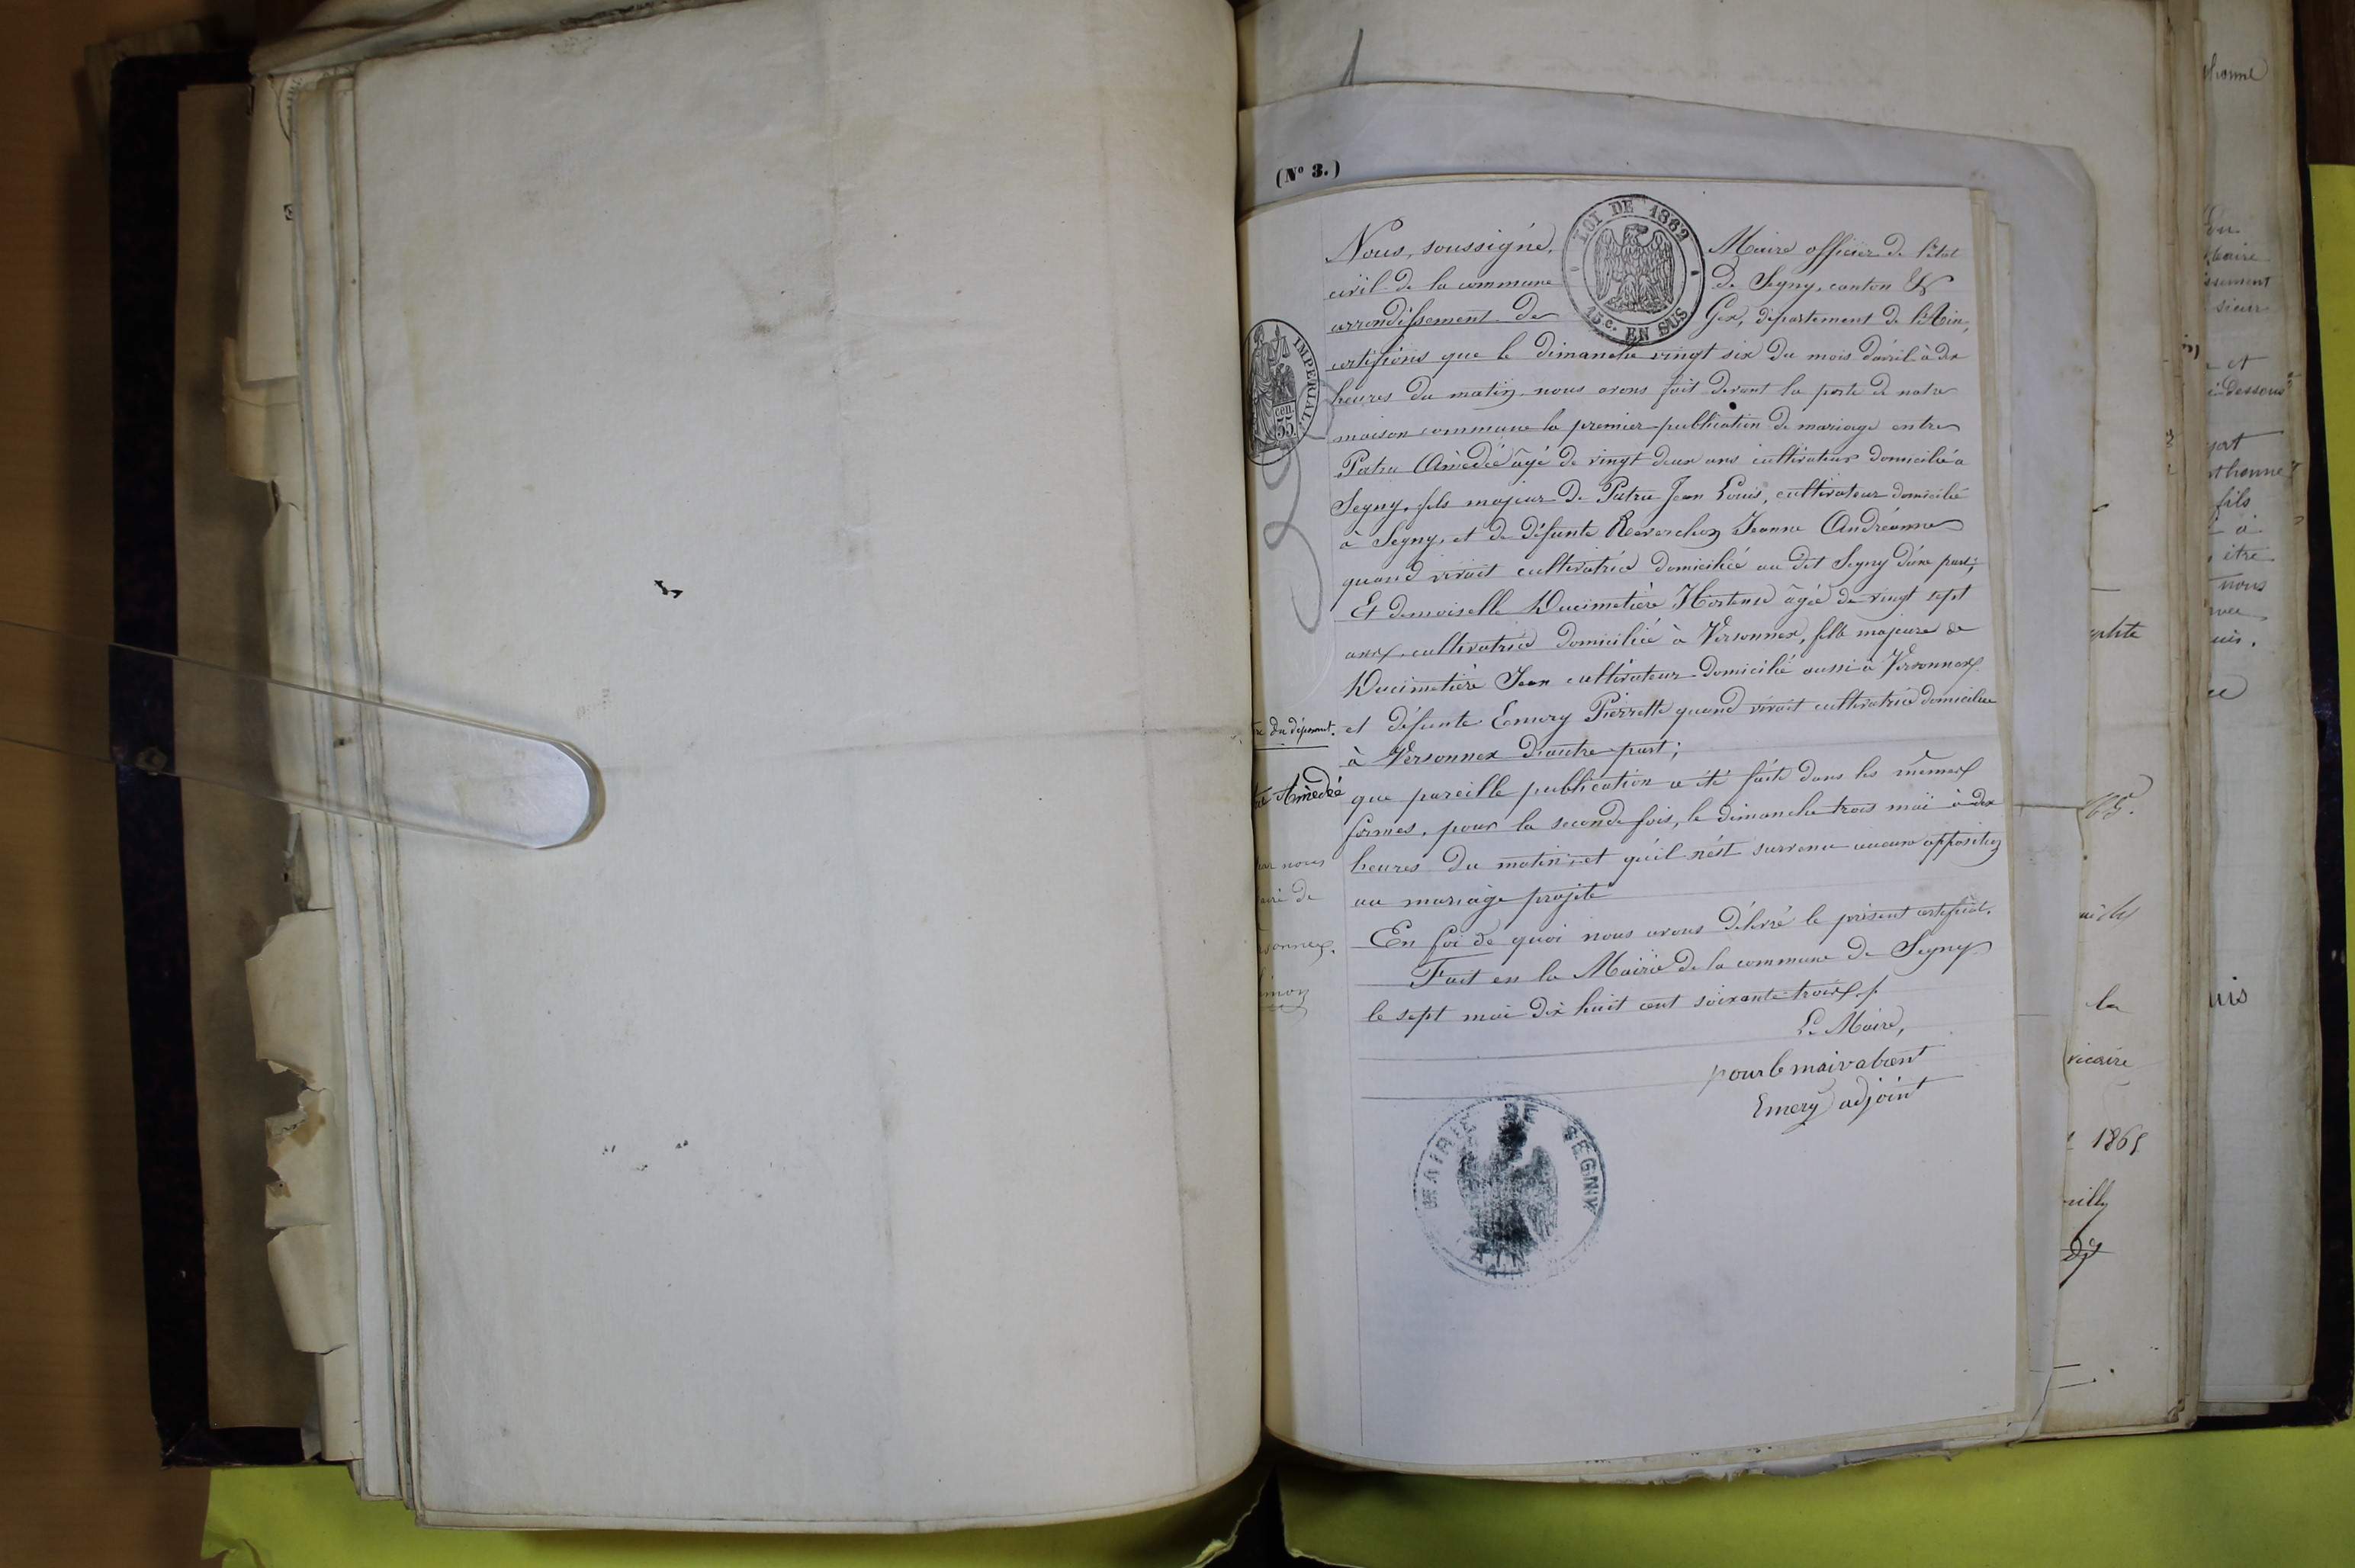 (N° 3.)
LOI DE 1862
15 c. EN SUS
IMPERIAL
cen.
35.
Nous, soussigné, Maire officier de l'état
civil de la commune de Segny, canton &
arrondissement de Gex, département de l'Ain,
certifions que le dimanche vingt six du mois d'avril à dix
heures du matin, nous avons fait devant la porte de notre
maison commune la premier publication de mariage entre
Patru Amédée âgé de vingt deux ans cultivateur domicilié a
Segny, fils majeur de Patru Jean Louis, cultivateur domicilié
à Segny, et de défunte Reverchon Jeanne Andréanne
quand vivait cultivatrice domiciliée au dit Segny d'une part;
Et demoiselle Ducimetière Hortense âgée de vingt sept
ans, cultivatrice domiciliée à Versonnex, fille majeure de
Ducimetière Jean cultivateur domicilié aussi à Versonnex
et défunte Emery Pierrette quand vivait cultivatrice domiciliée
à Versonnex d'autre part;
que pareille publication a été faite dans les mêmes
formes, pour la seconde fois, le dimanche trois mai à dix
heures du matin; et qu'il n'est survenu aucune opposition
au mariage projeté
En foi de quoi nous avons délivré le présent certificat.
Fait en la Mairie de la commune de Segny
le sept mai dix huit cent soixante trois
Le Maire,
pour le maire absent
Emery adjoint
MAIRIE DE SEGNY
AIN
du déposant.
Amédée
nous
de
1865
la
vicaire
fils
à
être
nous